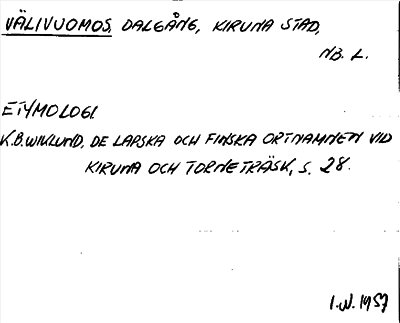 VÄLIVUOMOS, DALGÅNG, KIRUNA STAD,
NB. L.
ETYMOLOGI
K.B. WIKLUND, DE LAPSKA OCH FINSKA ORTNAMNEN VID
KIRUNA OCH TORNETRÄSK, S. 28.
I.W. 1957